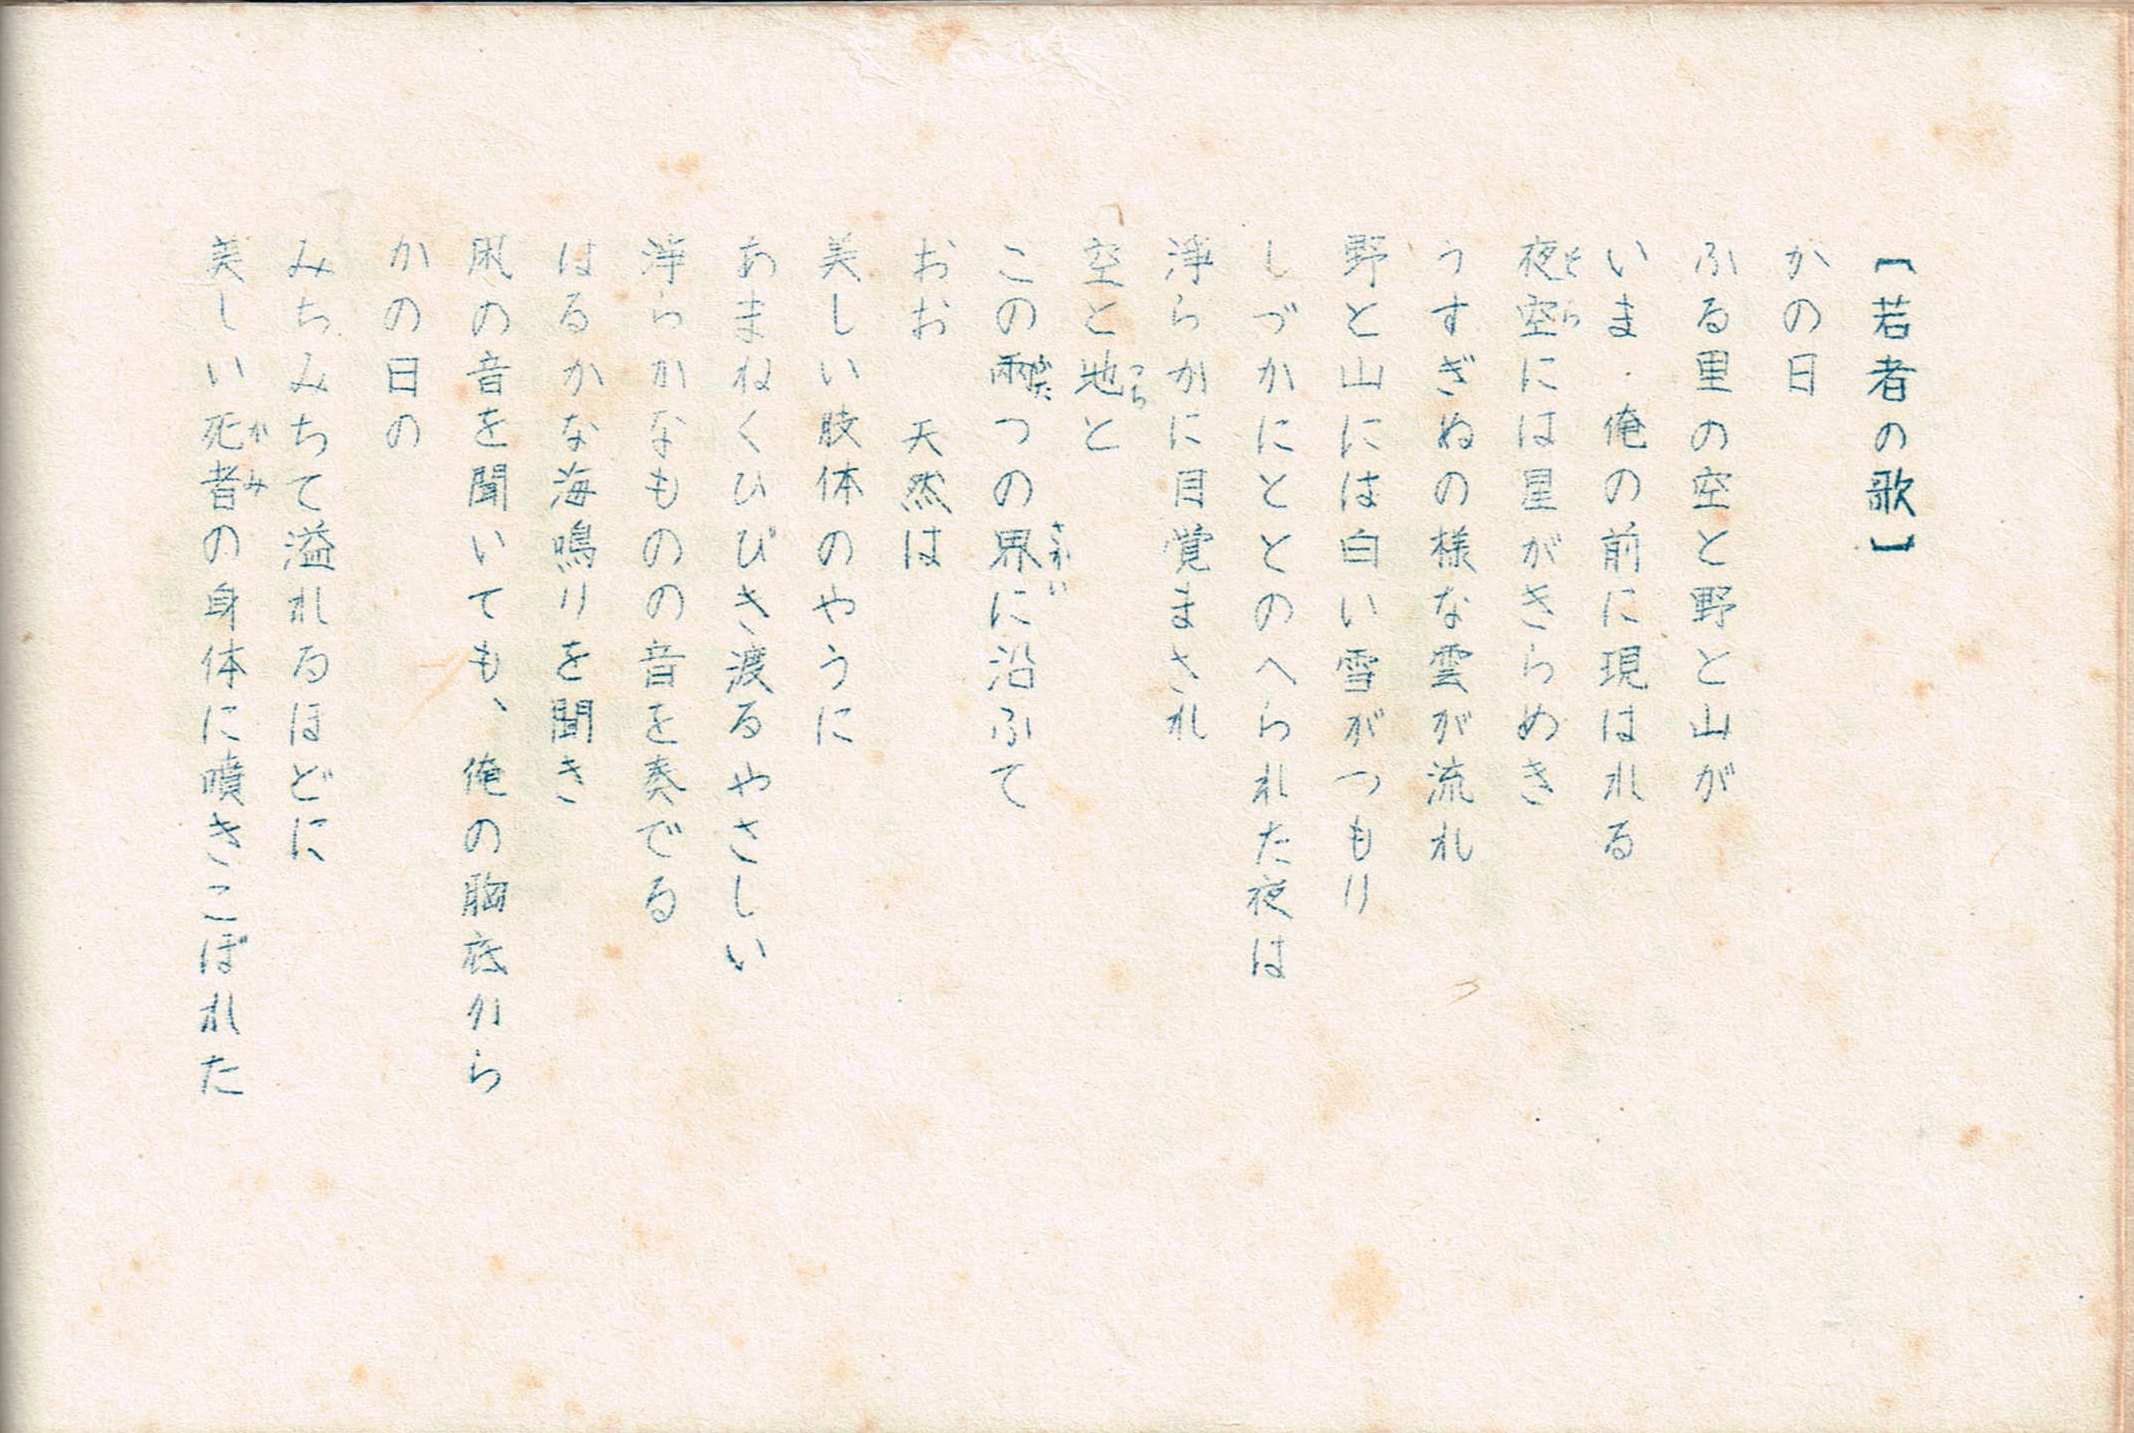 【若者の歌】
かの日
ふる里の空と野と山が
いま 俺の前に現はれる
夜空には星がきらめき
うすぎぬの様な雲が流れ
野と山には白い雪がつもり
しづかにととのへられた夜は
浄らかに目覚まされ
空と地と
この両つの界に沿ふて
おお 天然は
美しい肢体のやうに
あまねくひびき渡るやさしい
浄らかなものの音を奏でる
はるかな海鳴りを聞き
凩の音を聞いても、俺の胸底から
かの日の
みちみちて溢れるほどに
美しい死者の身体に噴きこぼれた